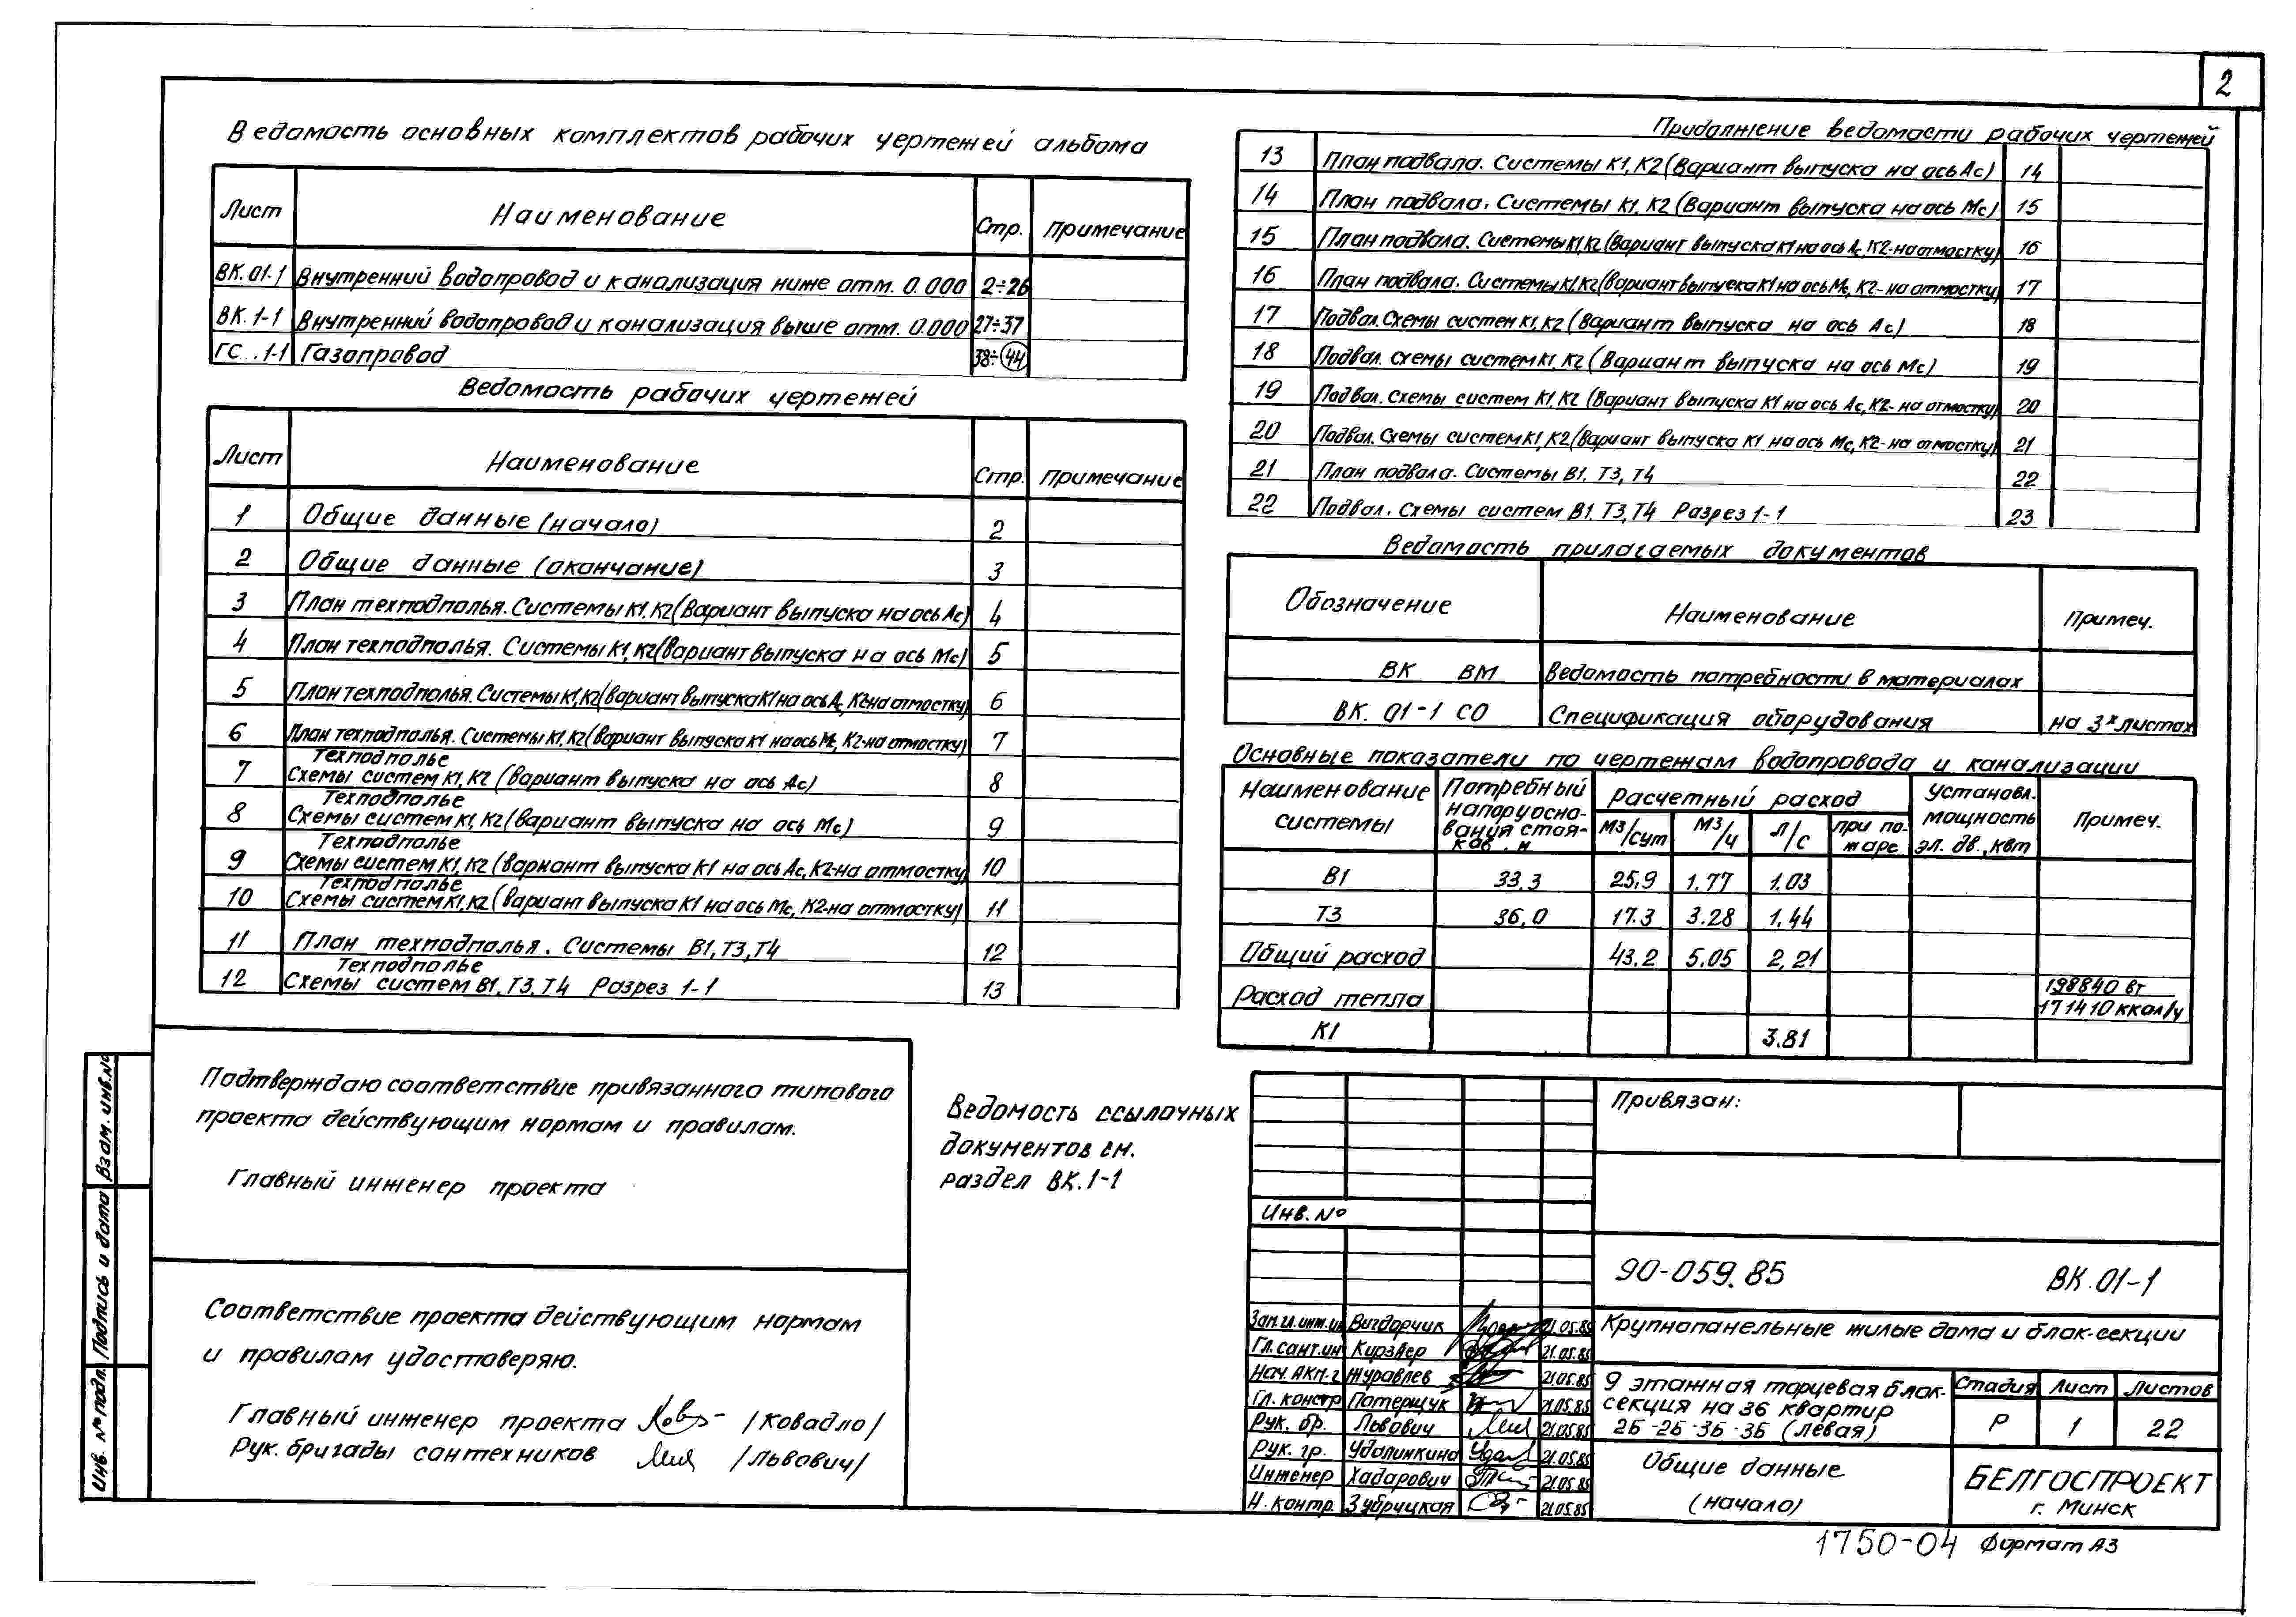 2
Ведомость основных комплектов рабочих чертежей альбома
Лист Наименование Стр. Примечание
ВК.01-1 Внутренний водопровод и канализация ниже отм. 0.000 2÷26
ВК.1-1 Внутренний водопровод и канализация выше отм. 0.000 27÷37
ГС..1-1 Газопровод 38÷44
Ведомость рабочих чертежей
Лист Наименование Стр. Примечание
1 Общие данные (начало) 2
2 Общие данные (окончание) 3
3 План техподполья. Системы К1, К2 (Вариант выпуска на ось Ас) 4
4 План техподполья. Системы К1, К2 (вариант выпуска на ось Мс) 5
5 План техподполья. Системы К1, К2 (вариант выпуска К1 на ось Ас, К2 на отмостку) 6
6 План техподполья. Системы К1, К2 (вариант выпуска К1 на ось Мс, К2-на отмостку) 7
Техподполье
7 Схемы систем К1, К2 (вариант выпуска на ось Ас) 8
Техподполье
8 Схемы систем К1, К2 (вариант выпуска на ось Мс) 9
Техподполье
9 Схемы систем К1, К2 (вариант выпуска К1 на ось Ас, К2-на отмостку) 10
Техподполье
10 Схемы систем К1, К2 (вариант выпуска К1 на ось Мс, К2-на отмостку) 11
11 План техподполья. Системы В1, Т3, Т4 12
Техподполье
12 Схемы систем В1, Т3, Т4 Разрез 1-1 13
Придолжение ведомости рабочих чертежей
13 План подвала. Системы К1, К2 (Вариант выпуска на ось Ас) 14
14 План подвала. Системы К1, К2 (Вариант выпуска на ось Мс) 15
15 План подвала. Системы К1, К2 (Вариант выпуска К1 на ось Ас, К2-на отмостку) 16
16 План подвала. Системы К1, К2 (вариант выпуска К1 на ось Мс, К2-на отмостку) 17
17 Подвал. Схемы систем К1, К2 (Вариант выпуска на ось Ас) 18
18 Подвал. Схемы систем К1, К2 (Вариант выпуска на ось Мс) 19
19 Подвал. Схемы систем К1, К2 (Вариант выпуска К1 на ось Ас, К2-на отмостку) 20
20 Подвал. Схемы систем К1, К2 (Вариант выпуска К1 на ось Мс, К2-на отмостку) 21
21 План подвала. Системы В1, Т3, Т4 22
22 Подвал. Схемы систем В1, Т3, Т4 Разрез 1-1 23
Ведомость прилагаемых документов
Обозначение Наименование Примеч.
ВК ВМ Ведомость потребности в материалах
ВК. 01-1 СО Спецификация оборудования на 3х листах
Основные показатели по чертежам водопровода и канализации
Наименование системы Потребный напор у основания стояков, м Расчетный расход Установл. мощность эл. дв., квт Примеч.
м3/сут м3/ч л/с при пожаре
В1 33,3 25,9 1.77 1.03
Т3 36,0 17.3 3.28 1,44
Общий расход 43.2 5.05 2,21
Расход тепла 198840 вт
171410 ккал/ч
К1 3.81
Подтверждаю соответствие привязанного типового
проекта действующим нормам и правилам.
Главный инженер проекта
Соответствие проекта действующим нормам
и правилам удостоверяю.
Главный инженер проекта /Ковадло/
Рук. бригады сантехников /Львович/
Ведомость ссылочных
документов см.
раздел ВК.1-1
Взам. инв.№
Подпись и дата
Инв. № подл.
Привязан:
Инв. №
90-059.85 ВК.01-1
Зам.гл.инж.ин Вигдорчик 21.05.85
Гл. сант.ин Кирзнер 21.05.85
Нач. АКМ-2 Журавлев 21.05.85
Гл. констр Потерщук 21.05.85
Рук. бр. Львович 21.05.85
Рук. гр. Удалинкина 21.05.85
Инженер Хадарович 21.05.85
Н. контр. Зубрицкая 21.05.85
Крупнопанельные жилые дома и блок-секции
9 этажная торцевая блок-
секция на 36 квартир
2Б-2Б-3Б-3Б (левая)
Стадия Лист Листов
Р 1 22
Общие данные
(начало)
БЕЛГОСПРОЕКТ
г. Минск
1750-04 Формат А3